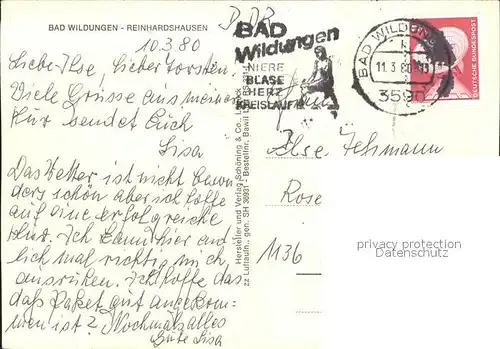 BAD WILDUNGEN - REINHARDSHAUSEN
10.3.80
Liebe Ilse, lieber Torsten,
Viele Grüsse aus meiner
Kur sendet Euch
Lisa
Das Wetter ist nicht beson-
ders schön aber ich hoffe
auf eine erfolgreiche
Kur. Ich kann hier end-
lich mal richtig mich
ausruhen. Ich hoffe das
das Paket gut angekom-
men ist? Nochmals alles
Gute Lisa
Hersteller und Verlag Schöning & Co.,
gen. SH 36931 - Bestellnr. Bawil
DDR
BAD
Wildungen
NIERE
BLASE
HERZ
KREISLAUF
BAD WILDUNGEN
11.3.80
3590
DEUTSCHE BUNDESPOST
Frau
Ilse Jehmann
Rose
1136
privacy protection
Datenschutz